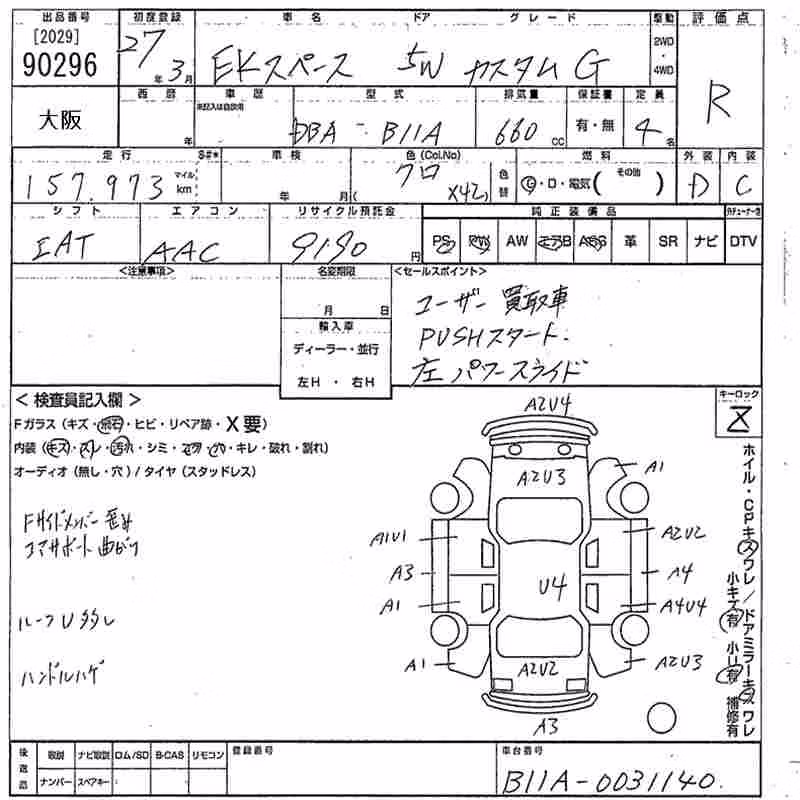 出品番号 初度登録 車名 ドア グレード 駆動 評価点
[2029] 90296 27年3月 EKスペース 5W カスタムG 2WD・4WD R
大阪 西暦 年 車歴 未記入は自家用 型式 DBA-B11A 排気量 660cc 保証書 有・無 定員 4名
走行 157,973 マイル km S#* 車検 年 月 色(Col.No) クロ (X42) 色替 燃料 G・D・電気( その他 ) 外装 D 内装 C
シフト IAT エアコン AAC リサイクル預託金 9190円 純正装備品 PS PW AW エアB ABS 革 SR ナビ DTV
<注意事項> 名変期限 月 日 <セールスポイント>
ユーザー買取車
輸入車 PUSHスタート.
ディーラー・並行
左H・右H 左パワースライド
<検査員記入欄> キーロック
Fガラス(キズ・飛石・ヒビ・リペア跡・X要)
内装(キズ・スレ・汚れ・シミ・コゲ・穴・キレ・破れ・割れ)
オーディオ(無し・穴)/タイヤ(スタッドレス)
A2U4
A2U3 A1
Fサイドメンバー歪み
コアサポート曲がり
A1U1 A2U2
A3 U4 A4
A1 A4U4
ルーフU多し
A1 A2U2 A2U3
ハンドルハゲ
A3
ホイル・CPキズワレ/ドアミラーキズワレ
小キズ有 小U有 補修有
後送品 取説 ナビ取説 ロム/SD B-CAS リモコン 登録番号 車台番号
ナンバー スペアキー B11A-0031140